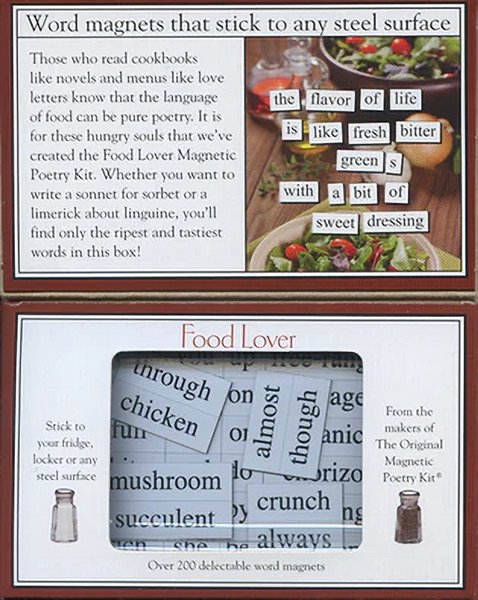 Word magnets that stick to any steel surface
Those who read cookbooks
like novels and menus like love
letters know that the language
of food can be pure poetry. It is
for these hungry souls that we've
created the Food Lover Magnetic
Poetry Kit. Whether you want to
write a sonnet for sorbet or a
limerick about linguine, you'll
find only the ripest and tastiest
words in this box!
the flavor of life
is like fresh bitter
green s
with a bit of
sweet dressing
Food Lover
Stick to
your fridge,
locker or any
steel surface
you up free-rang
through
chicken
on
almost
though
age
full
anic
mushroom
succulent
do
orizo
crunch
always
by
ng
she be
From the
makers of
The Original
Magnetic
Poetry Kit®
Over 200 delectable word magnets